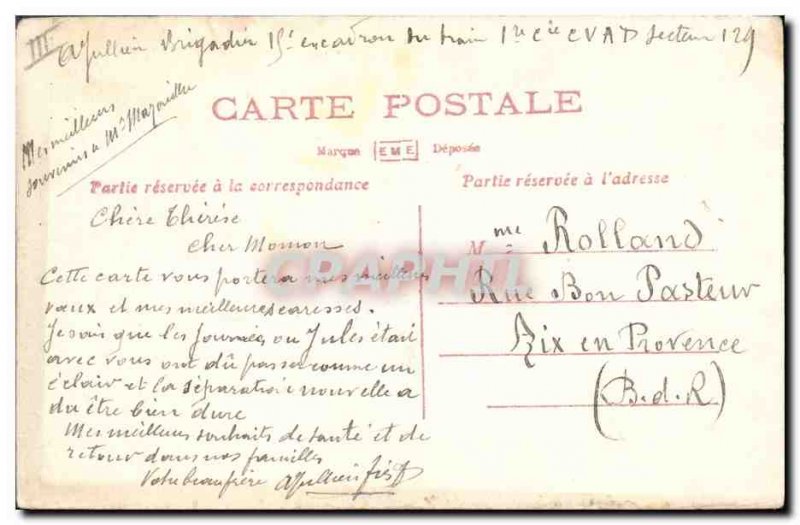 III
A Jullien Brigadier 15e escadron du train 1re Cie CVAD Secteur 129
Mes meilleurs
souvenirs a Mr
CARTE POSTALE
Marque EME Déposée
Partie réservée à la correspondance
Partie réservée à l'adresse
Chère Thérèse
Cher Momon
Cette carte vous portera mes meilleurs
vœux et mes meilleures caresses.
Je sais que les journées ou Jules était
avec vous ont dû passer comme un
éclair et la séparation nouvelle a
du être bien dure
Mes meilleurs souhaits de santé et de
retour dans nos familles
Votre beau frère A Jullien
Mme Rolland
Rue Bon Pasteur
Aix en Provence
(B.d.R)
CPAPHIL